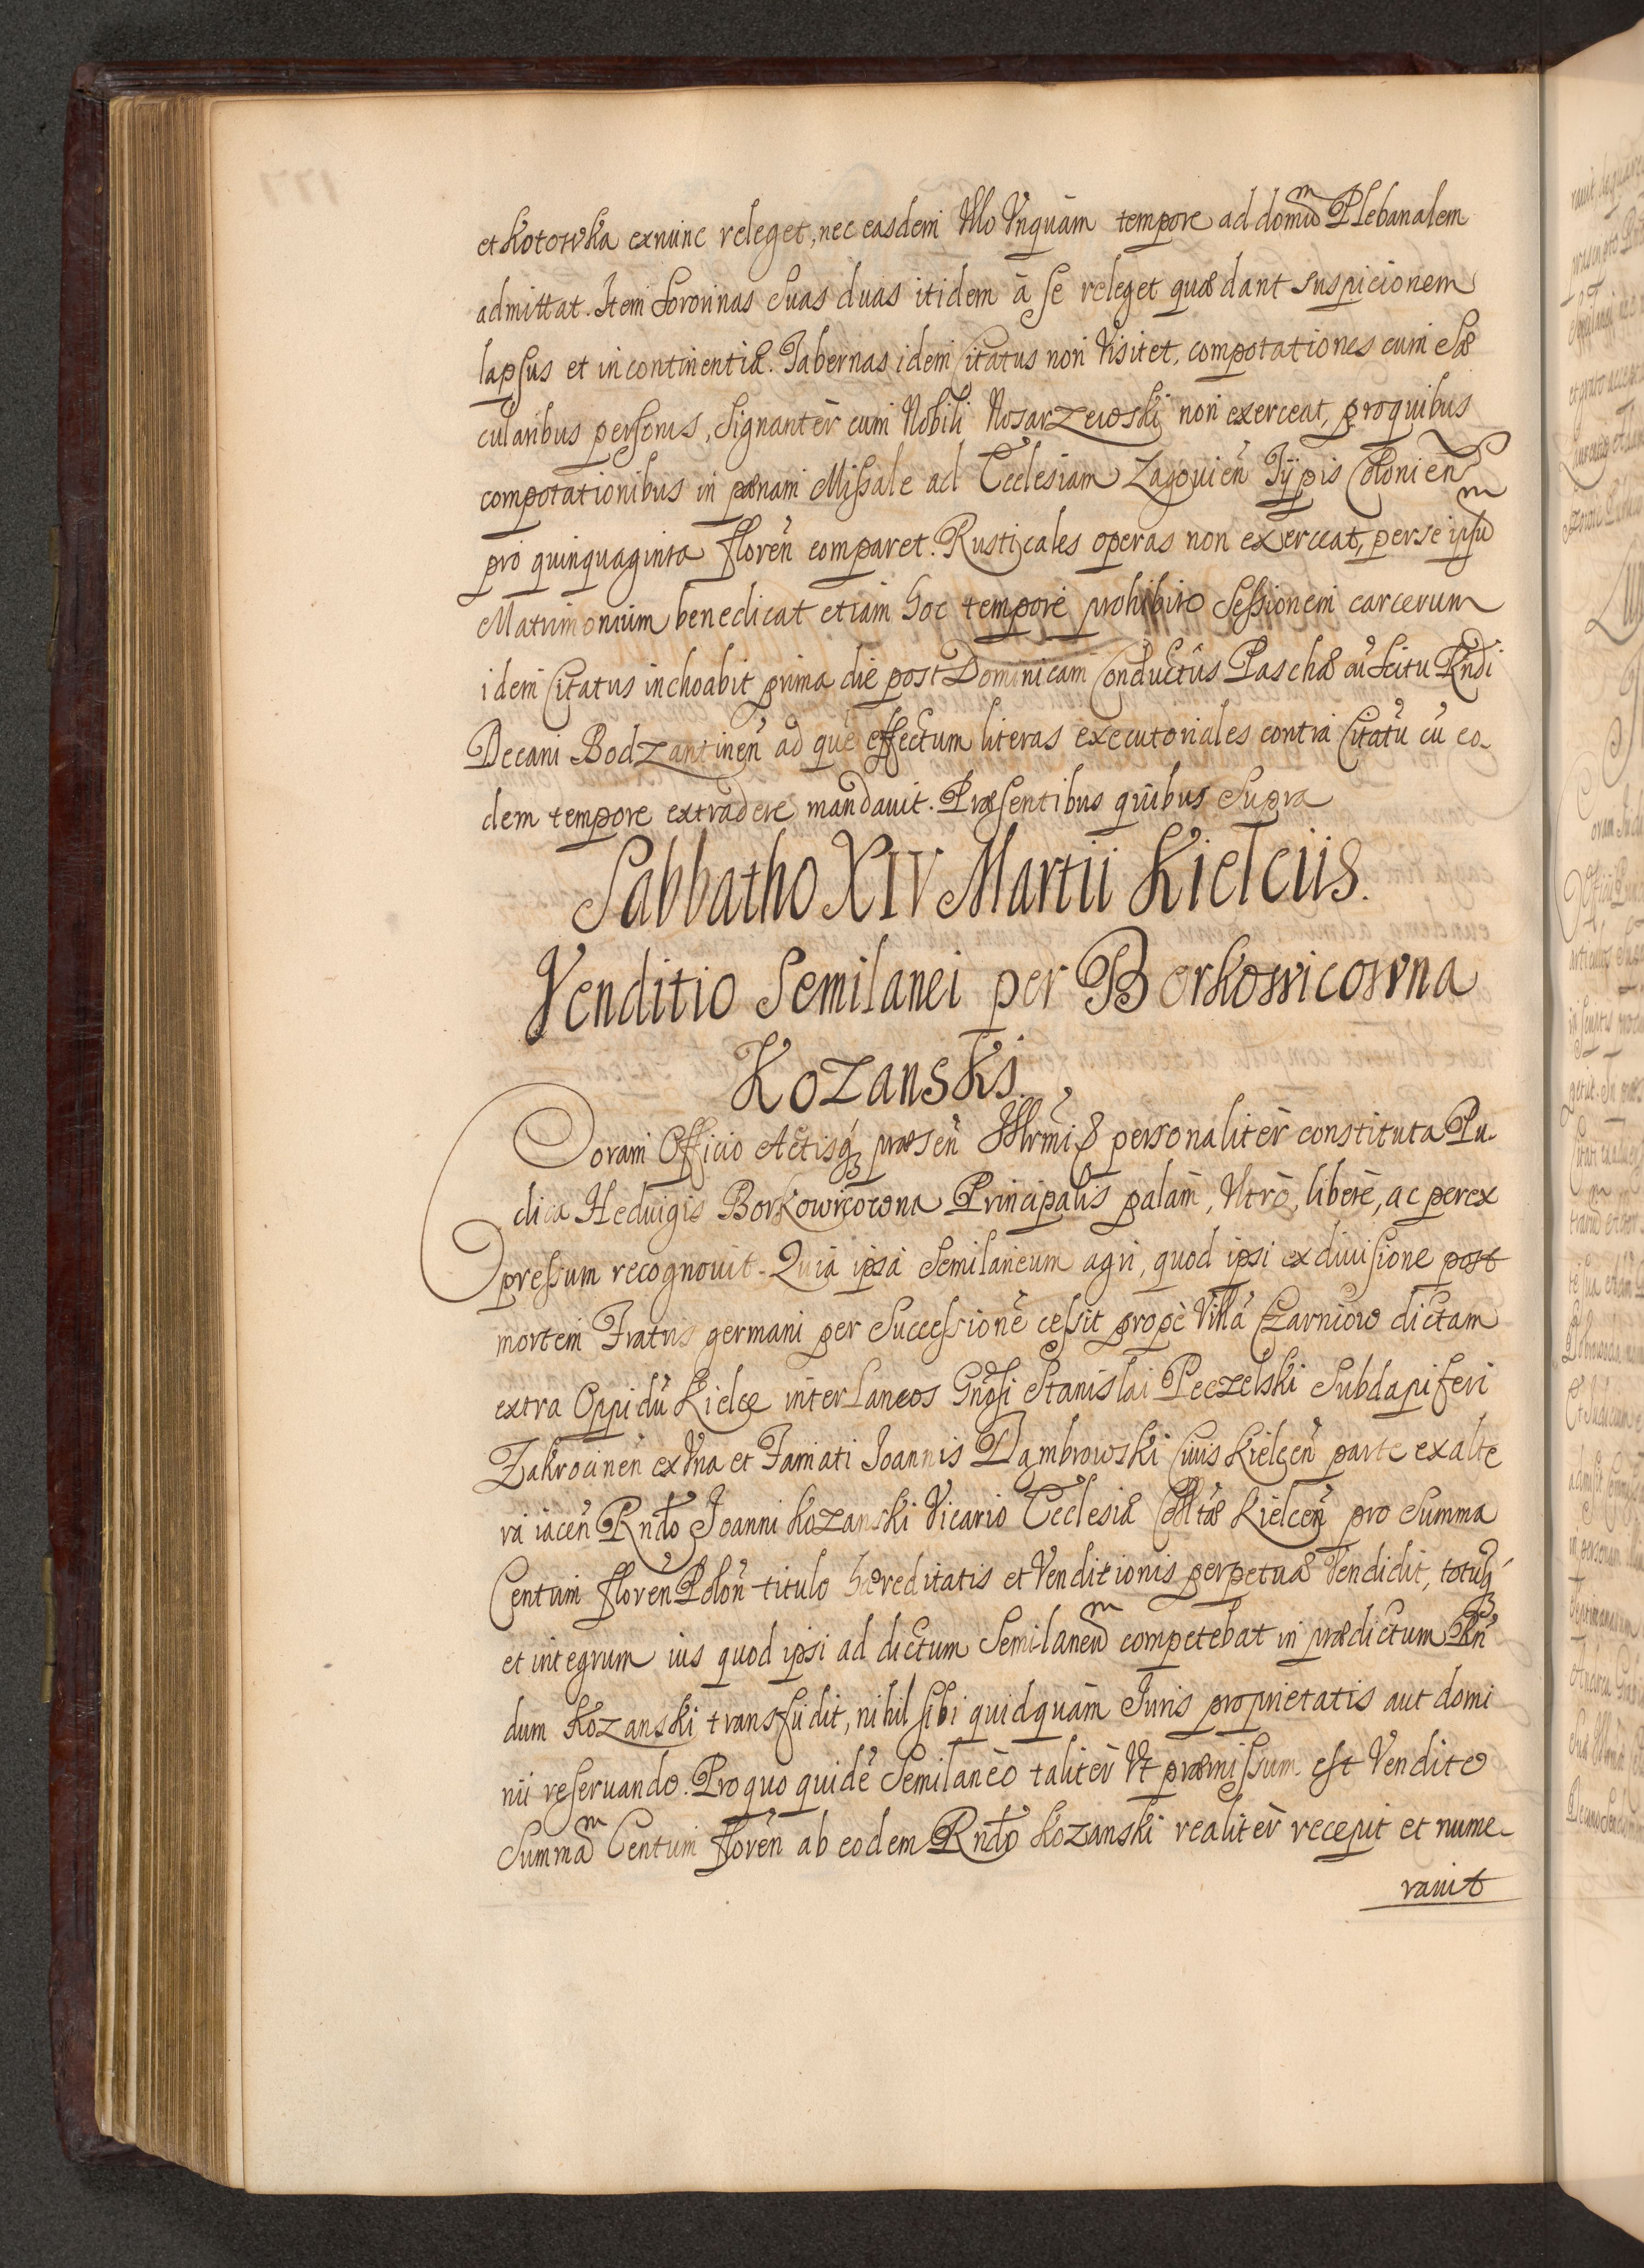 et Kotowka exnunc releget, nec easdem Vllo Vnquàm tempore ad domũ Plebanalem
admittat. Item Sororinas suas duas itidem à se releget quæ dant suspicionem
lapsus et incontinentiæ. Tabernas idem Citatus non Visitet, compotationes cum sæ
cularibus personis, signantèr cum Nobili Nosarzewski non exerceat, pro quibus
compotationibus in pœnam Missale ad Ecclesiam Zagovień Tijpis Colonień
pro quinquaginta floreń comparet. Rusticales operas non exerceat, per se ipsũ
Matrimonium benedicat etiam hoc tempore prohibito sessionem carcerum
idem Citatus inchoabit prima die post Dominicam Conductus Paschæ cũ scitu Rńdi
Decani Bodzantineń ad quẽ effectum literas executoriales contra Citatũ cũ eo-
dem tempore extradere mandauit. Præsentibus quibus supra
Sabbatho XIV Martii Kielciis.
Venditio Semilanei per Borkowicowna
Kozanski.
Coram Officio Actisq; præseń Illrmiq; personalitèr constituta Pu-
dica Heduigis Borkowicowna Principalis palàm, Vtrò, liberè, ac perex
pressum recognouit. Quia ipsa Semilaneum agri, quod ipsi ex diuisione post
mortem Fratris germani per Successionẽ cessit propè Villã Czarniow dictam
extra Oppidũ Kielce inter Laneos Gńosi Stanislai Peczelski Subdapiferi
Zakrocineń ex Vna et Famati Joannis Dąmbrowski Ciuis Kielceń parte ex alte
ra iaceń Rńdo Joanni Kozanski Vicario Ecclesiæ Colltæ Kielceń pro Summa
Centum floren Poloń titulo hæreditatis et Venditionis perpetuæ Vendidit, totumq;
et integrum ius quod ipsi ad dictum Semilaneũ competebat in prædictum Rń
dum Kozanski transfudit, nihil sibi quidquàm Iuris proprietatis aut domi
nii reseruando. Pro quo quidẽ Semilaneo talitèr Vt præmissum est Vendito
Summã Centum floreń ab eodem Rńdo Kozanski realitèr recepit et nume-
rauit